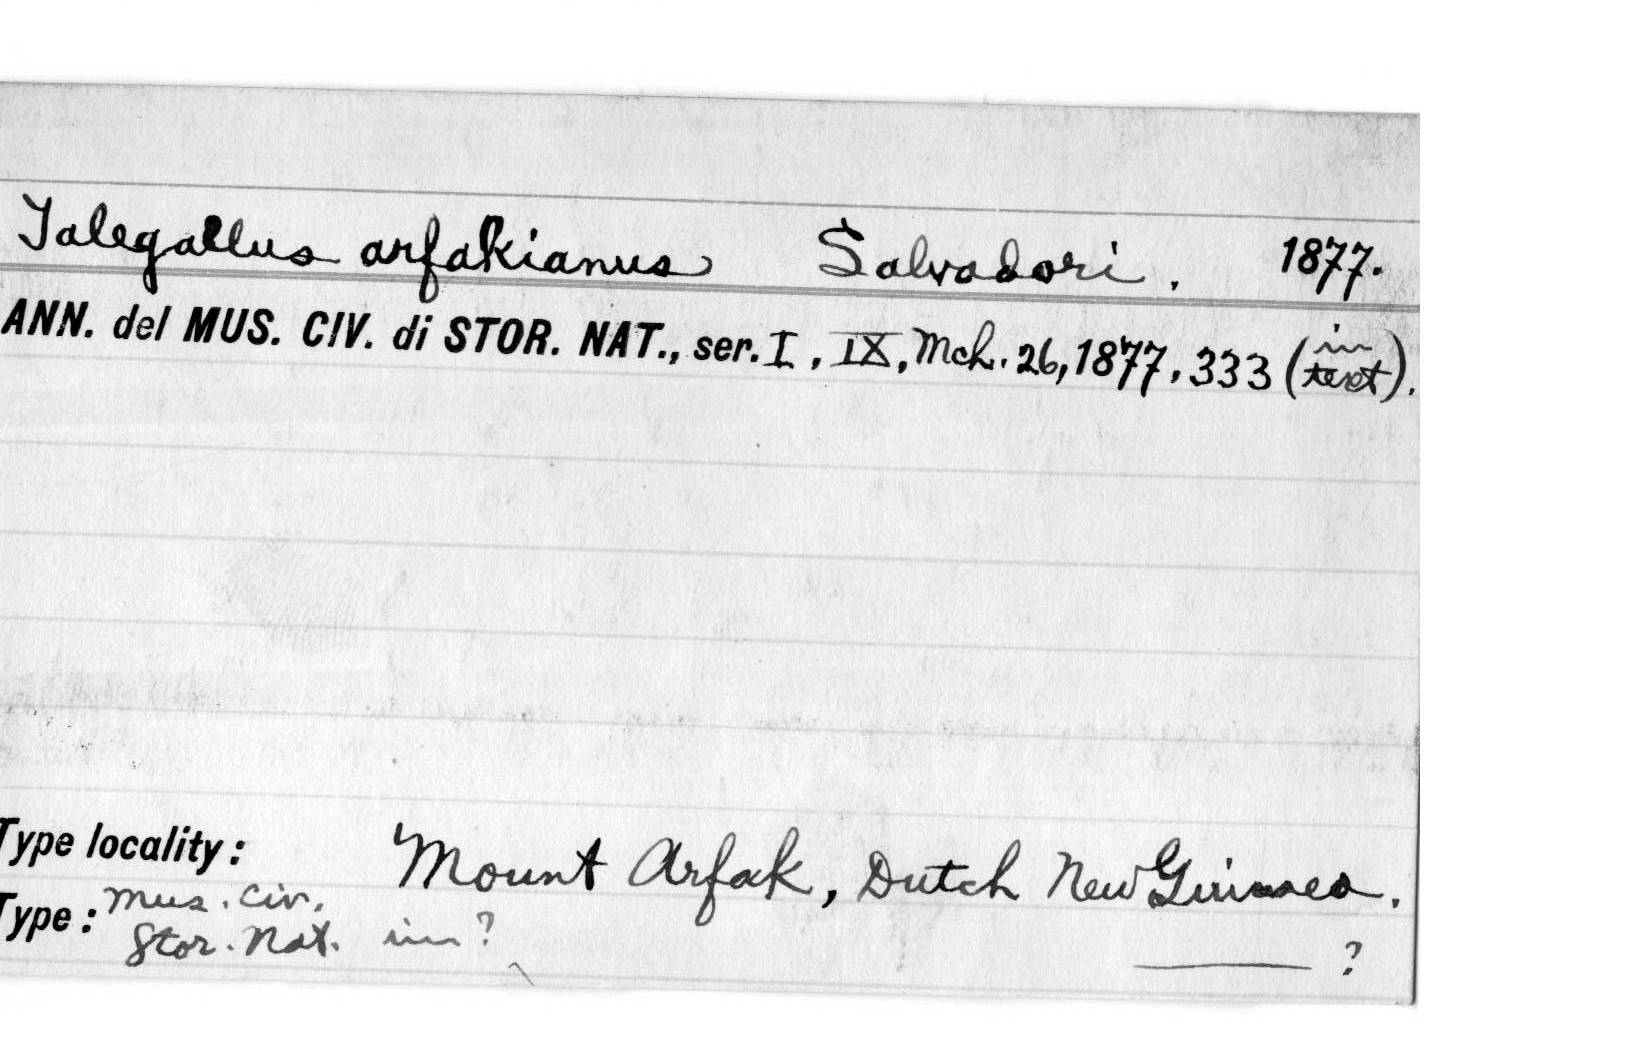 Talegallus arfakianus Salvadori. 1877.
ANN. del MUS. CIV. di STOR. NAT., ser. I, IX, Mch. 26, 1877, 333 (in text).
Type locality: Mount Arfak, Dutch New Guinea.
Type: Mus. Civ. Stor. Nat. im? ——— ?